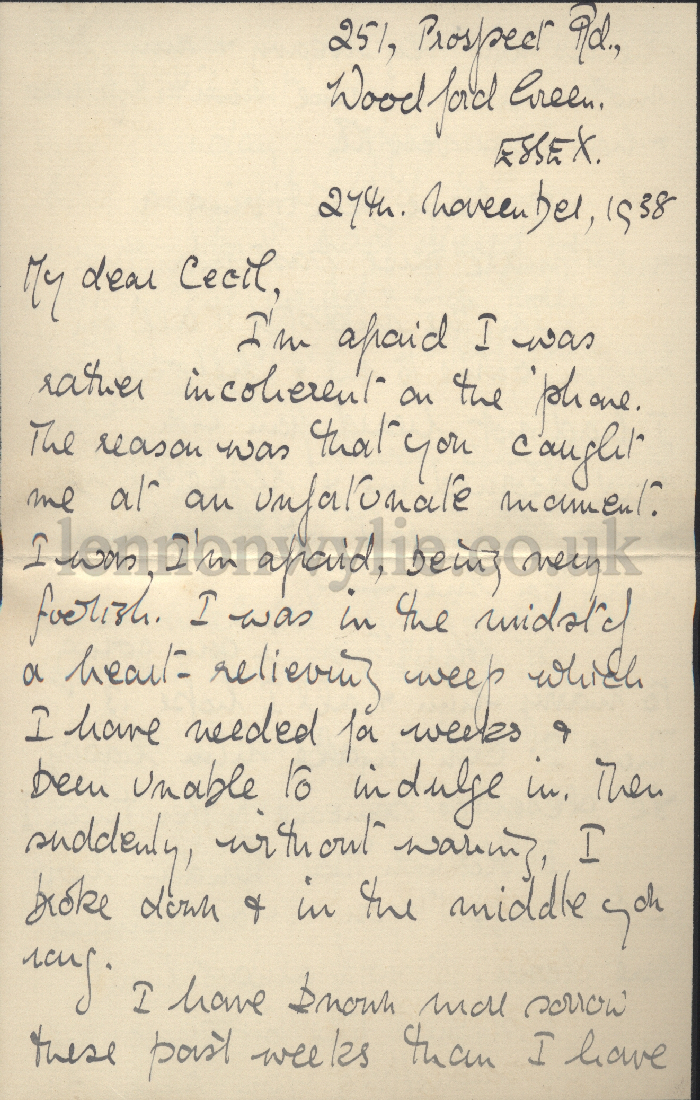 251, Prospect Rd.,
Woodford Green.
ESSEX.
27th. November, 1938
My dear Cecil,
I'm afraid I was
rather incoherent on the 'phone.
The reason was that you caught
me at an unfortunate moment.
lennonwylie.co.uk
I was, I'm afraid, being very
foolish. I was in the midst of
a heart-relieving weep which
I have needed for weeks &
been unable to indulge in. Then
suddenly, without warning, I
broke down & in the middle you
rang.
I have known more sorrow
these past weeks than I have